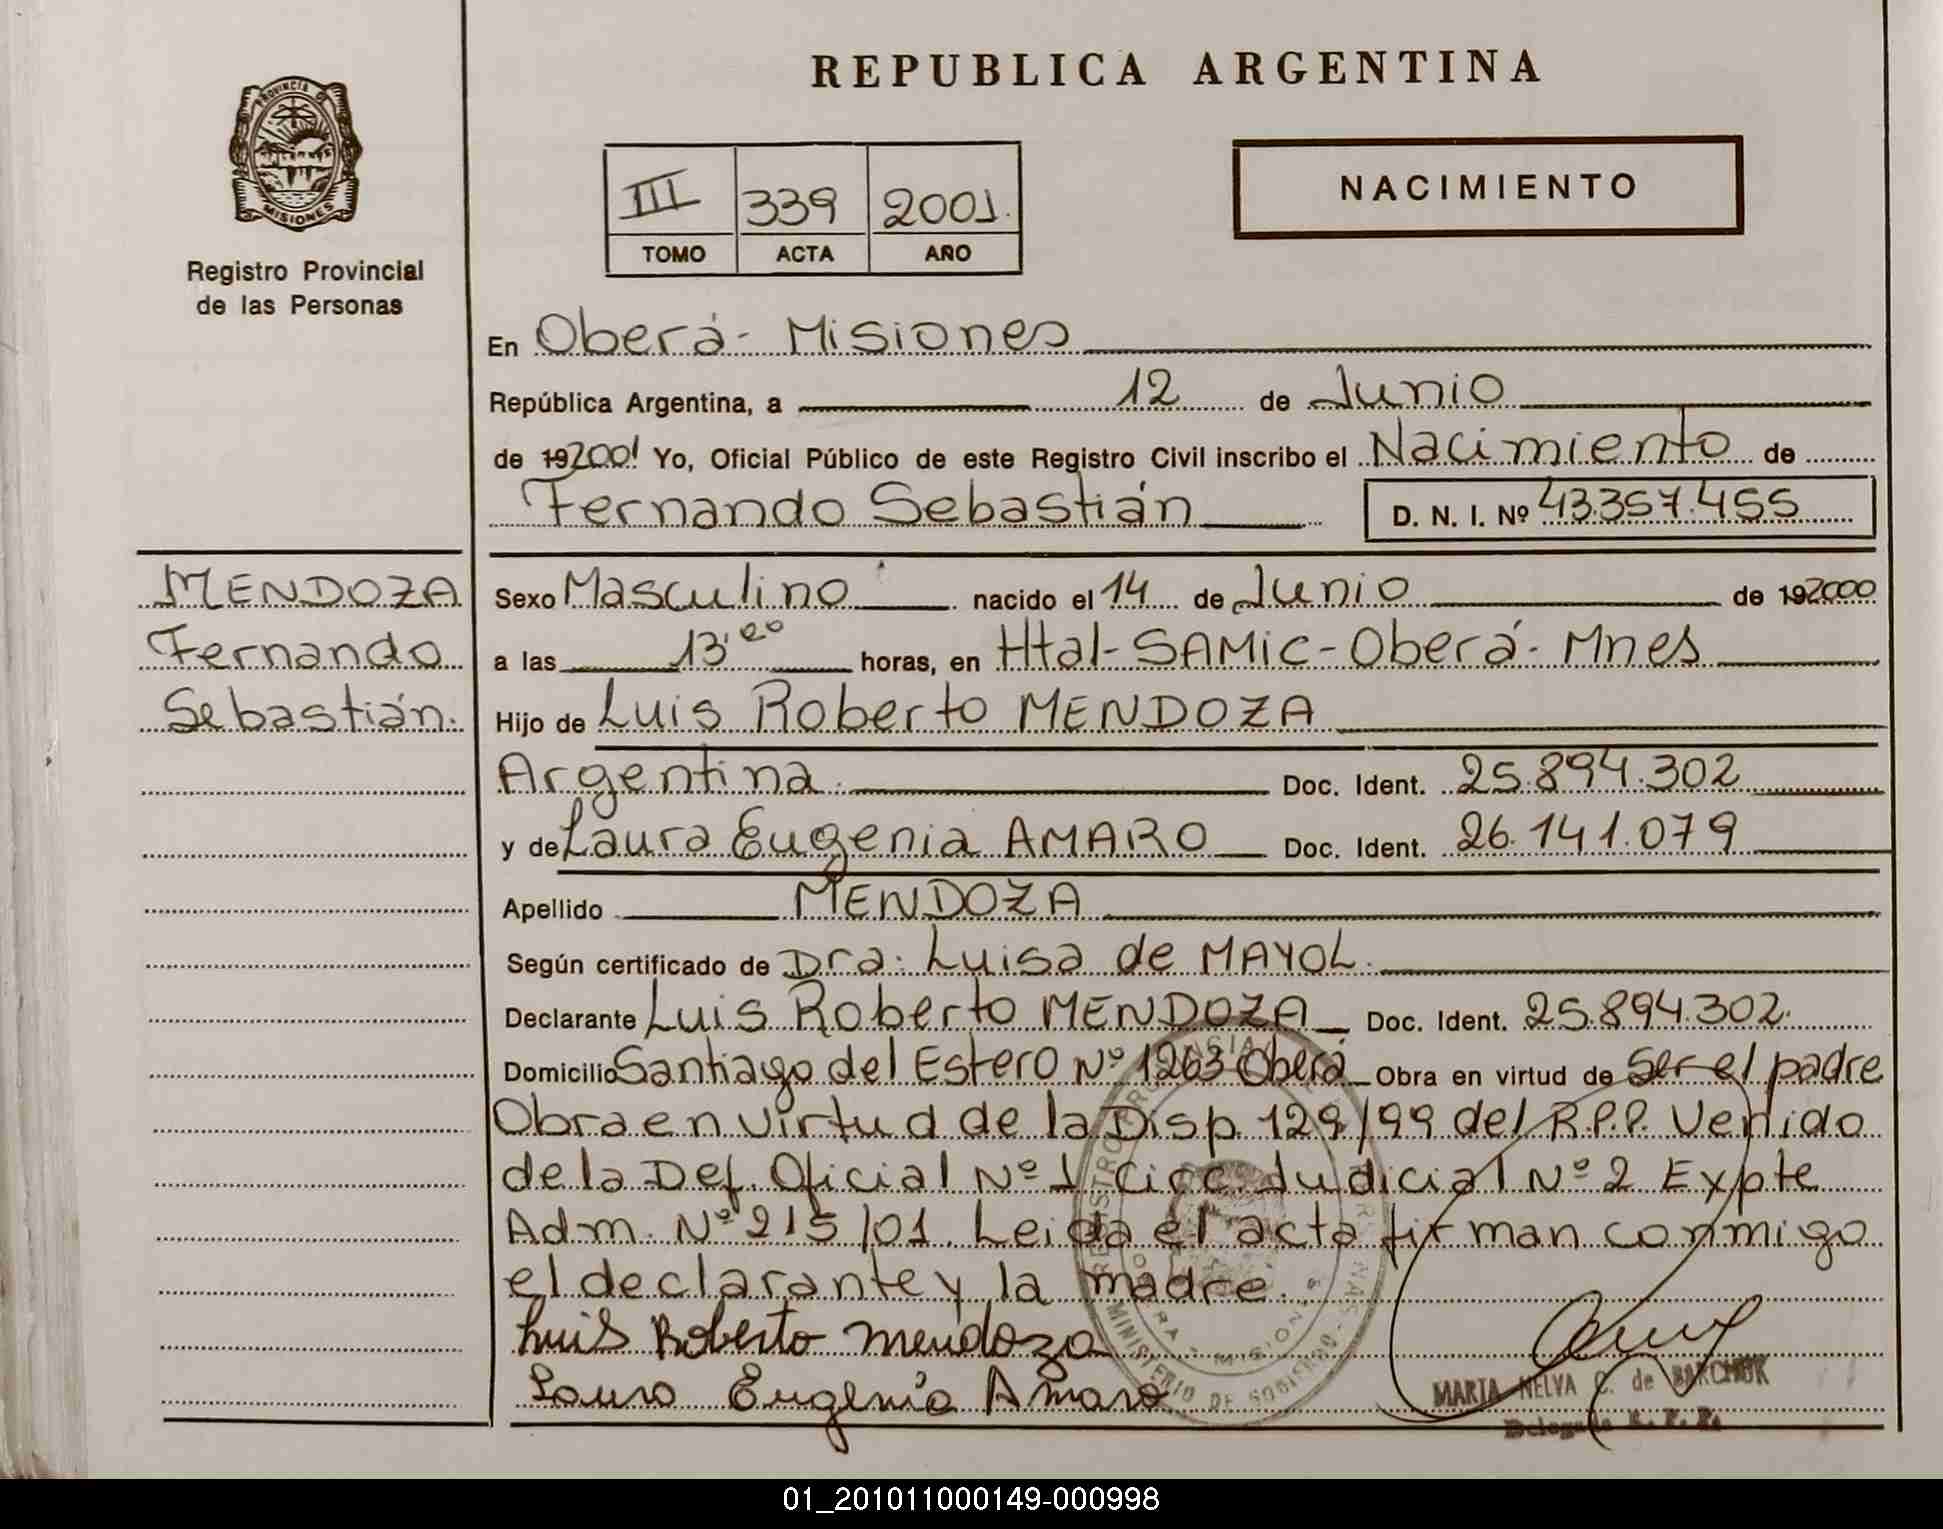 REPUBLICA ARGENTINA
PROVINCIA DE
MISIONES
Registro Provincial
de las Personas
III 339 2001.
TOMO ACTA AÑO
NACIMIENTO
En Oberá - Misiones
República Argentina, a 12 de Junio
de 192001 Yo, Oficial Público de este Registro Civil inscribo el Nacimiento de
Fernando Sebastián D. N. I. Nº 43.357.455
MENDOZA
Fernando
Sebastián.
Sexo Masculino nacido el 14 de Junio de 192000
a las 13'20 horas, en Htal-SAMIC-Oberá-Mnes
Hijo de Luis Roberto MENDOZA
Argentina. Doc. Ident. 25.894.302
y de Laura Eugenia AMARO Doc. Ident. 26.141.079
Apellido MENDOZA
Según certificado de Dra. Luisa de MAYOL.
Declarante Luis Roberto MENDOZA Doc. Ident. 25.894.302.
Domicilio Santiago del Estero Nº 1263 Oberá Obra en virtud de Ser el padre
Obra en virtud de la Disp. 129/99 del R.P.P. Venido
de la Def. Oficial Nº 1 Circ. Judicial Nº 2 Expte
Adm. Nº 215/01. Leida el acta firman conmigo
el declarante y la madre.
Luis Roberto Mendoza
Laura Eugenia Amaro
MARIA NELVA C. de BARCHUK
Delegada R. P. P.
MINISTERIO DE GOBIERNO
01_201011000149-000998